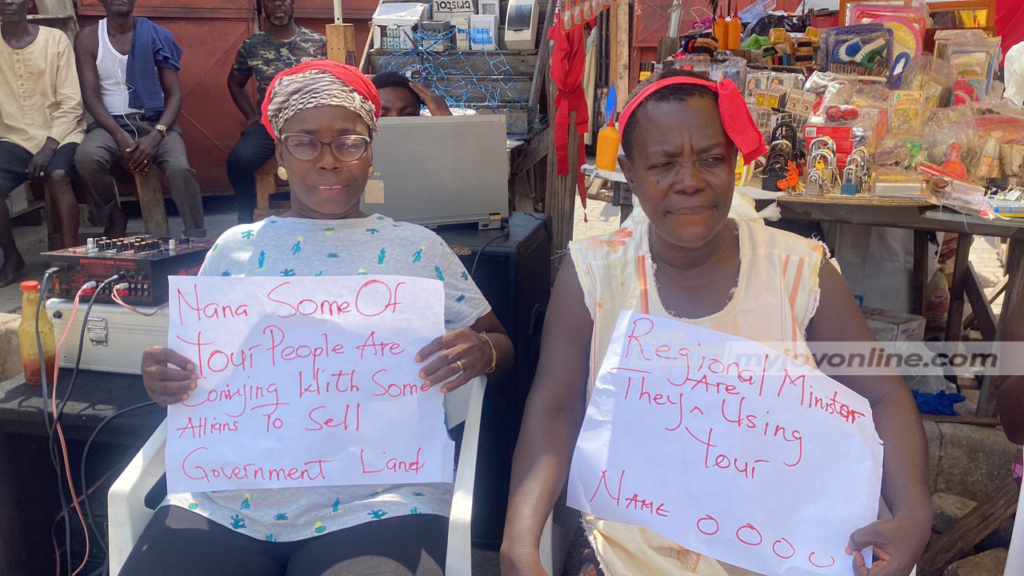 Nana Some Of
Your People Are
Coniving With Some
Allians To Sell
Government Land
Regional Minister
They Are Using
Your
NAME OOOO
myjoyonline.com